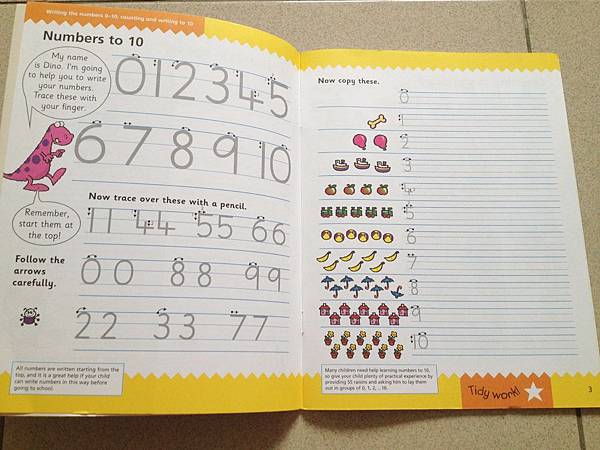 Writing the numbers 0–10, counting and writing to 10
Numbers to 10
My name
is Dino. I'm going
to help you to write
your numbers.
Trace these with
your finger.
0 1 2 3 4 5
6 7 8 9 10
Now trace over these with a pencil.
Remember,
start them at
the top!
11 44 55 66
Follow the
arrows
carefully.
00 88 99
22 33 77
All numbers are written starting from the
top, and it is a great help if your child
can write numbers in this way before
going to school.
Now copy these.
0
1
2
3
4
5
6
7
8
9
10
Many children need help learning numbers to 10,
so give your child plenty of practical experience by
providing 55 raisins and asking him to lay them
out in groups of 0, 1, 2, .. 10.
Tidy work!
3